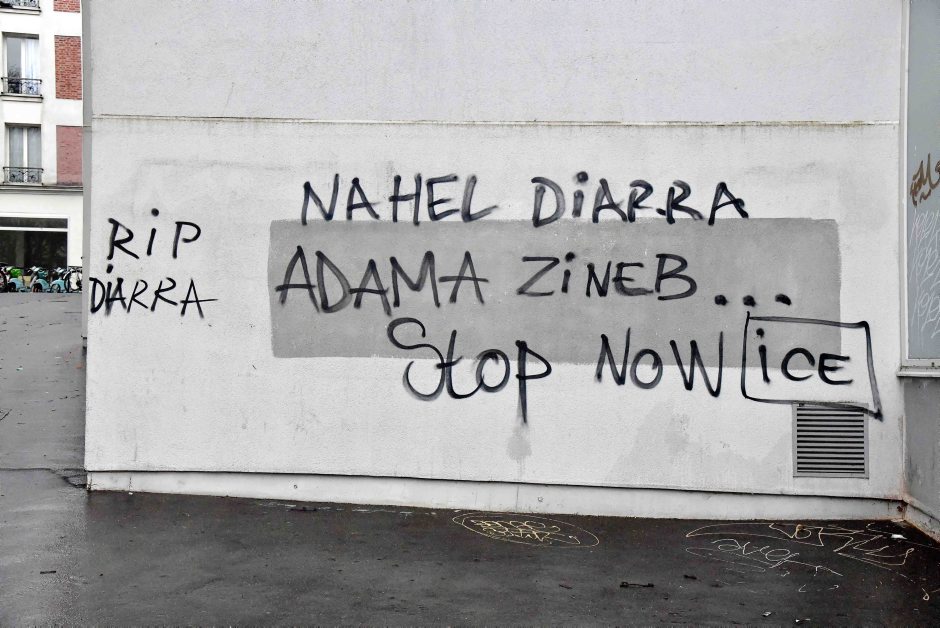 RiP
DiARRA
NAHEL DiARRA
ADAMA ZiNEB...
Stop NOW iCE